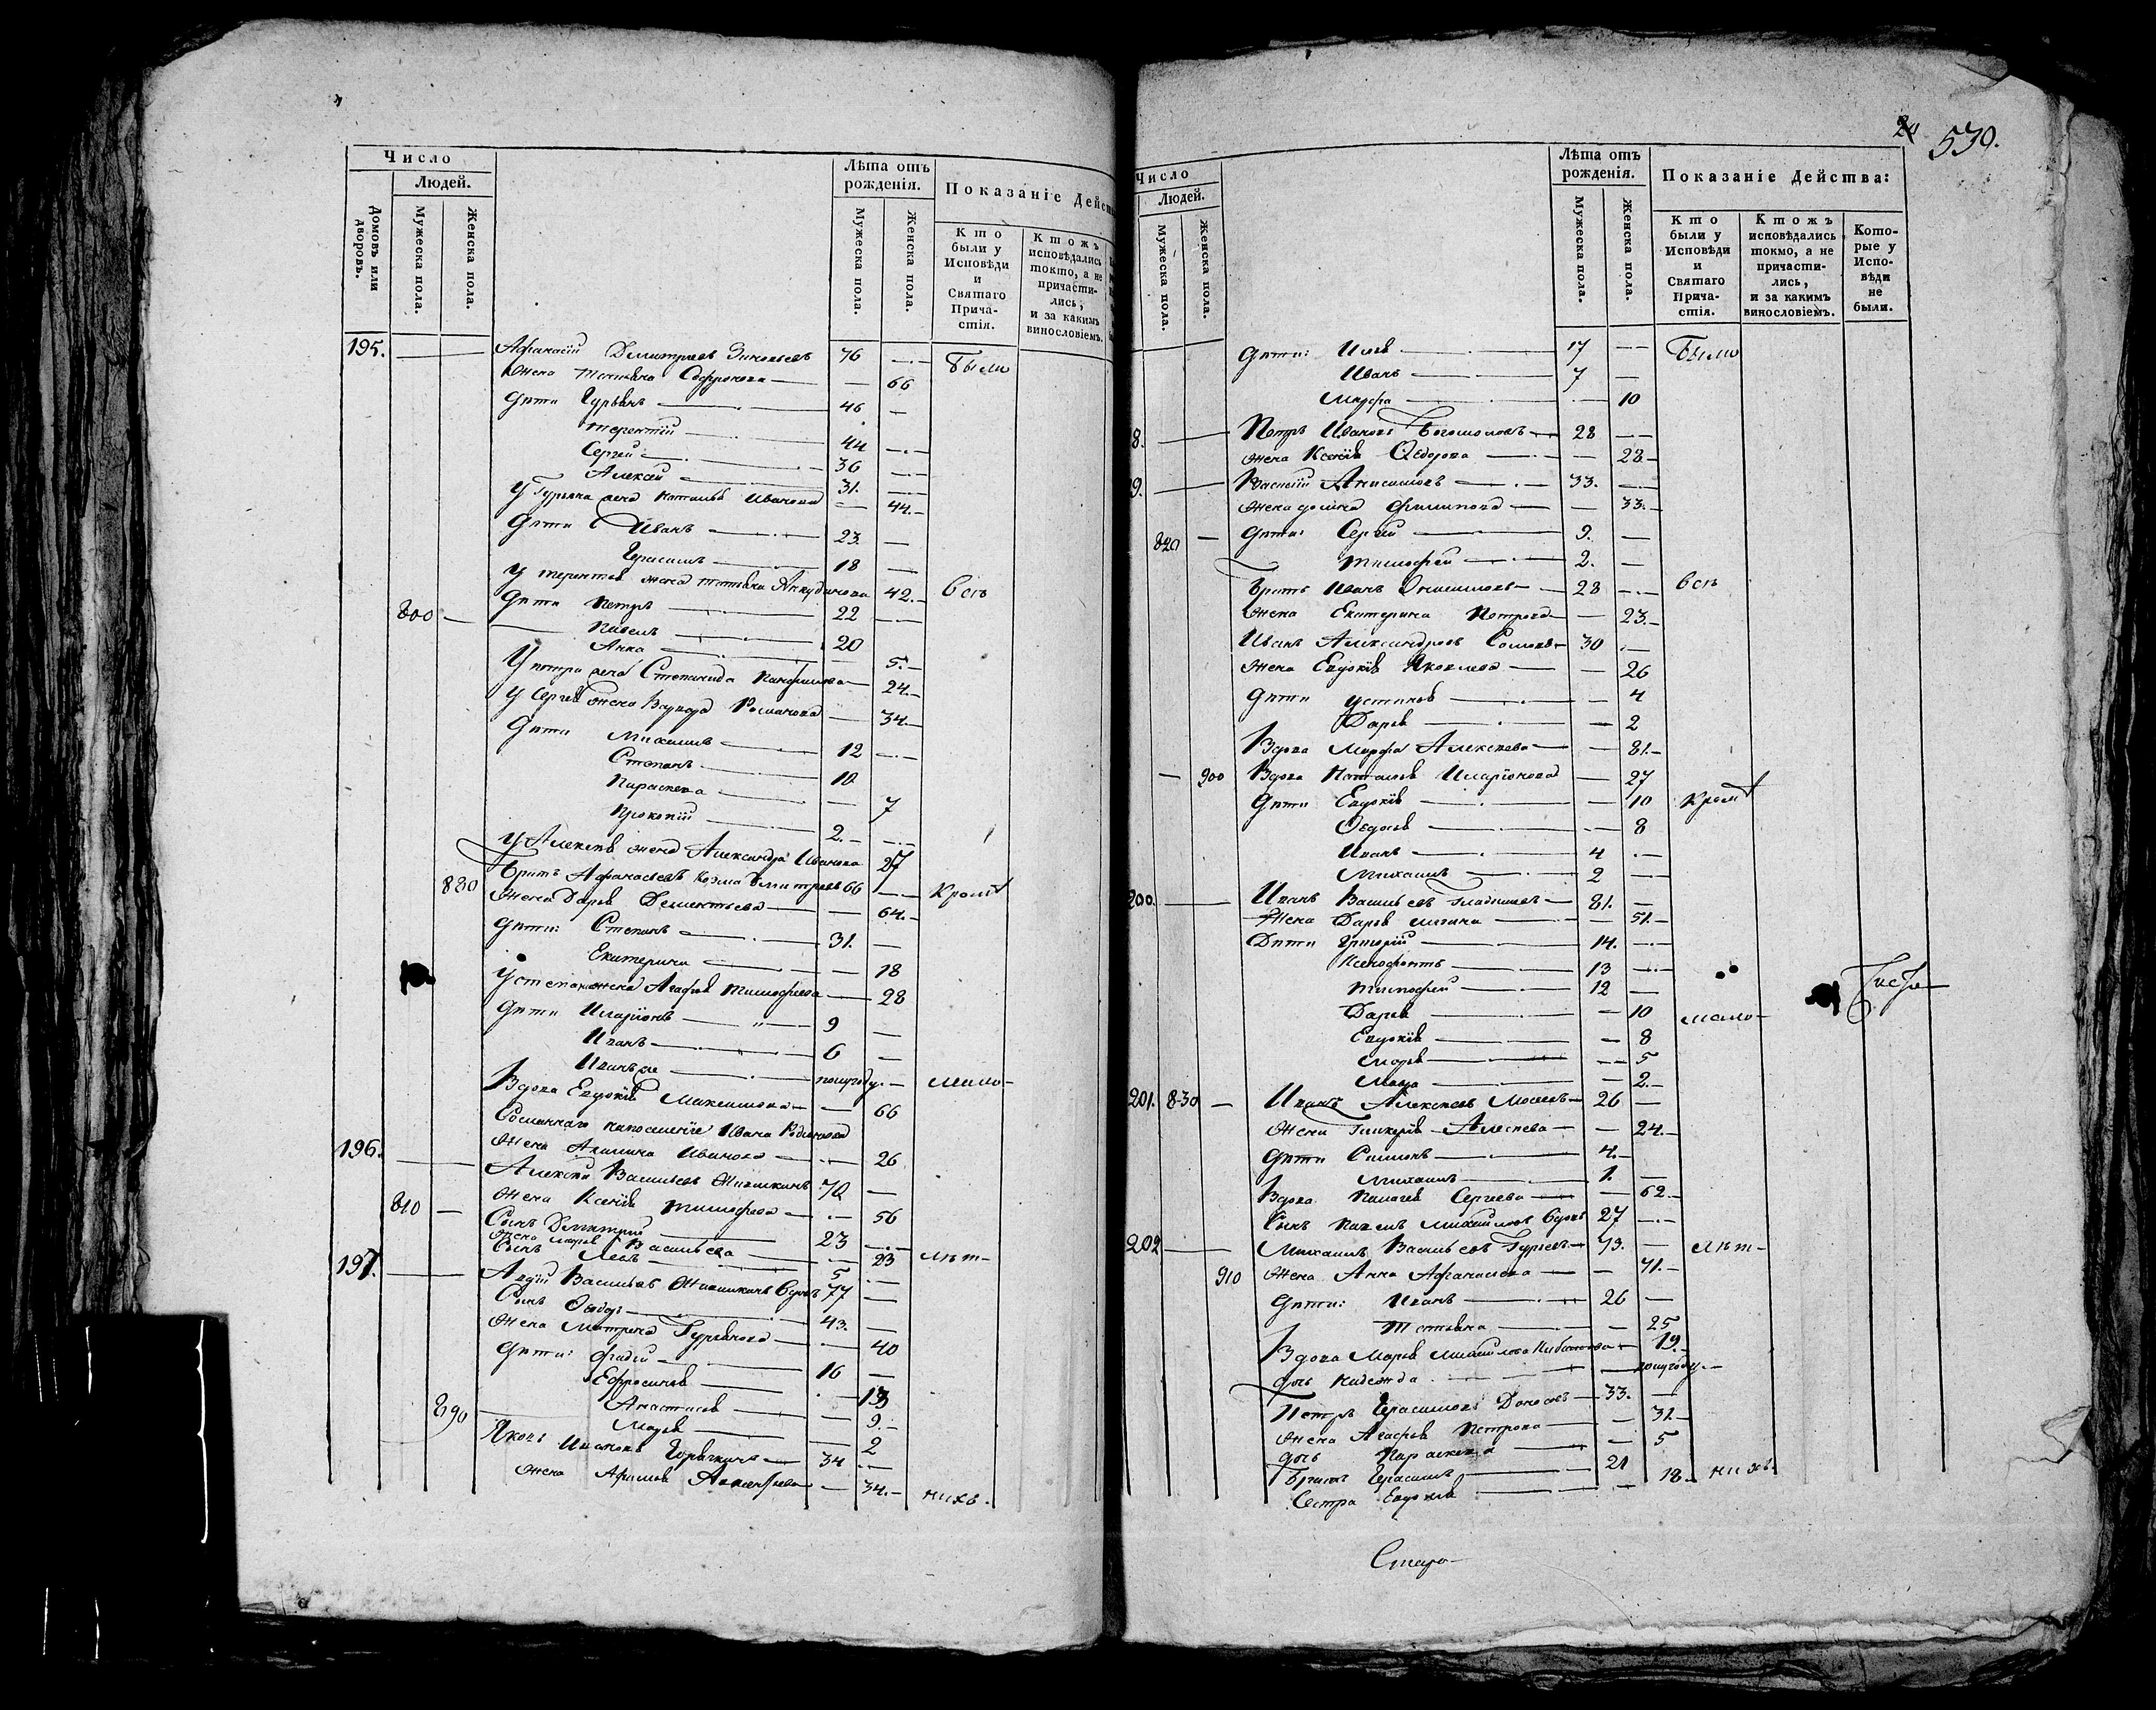 Число
Людей.
Домовъ или дворовъ.
Мужеска пола.
Женска пола.
Лѣта отъ рожденія.
Мужеска пола.
Женска пола.
Показаніе Дейст
Кто были у Исповѣди и Святаго Прича-стія.
Ктожъ исповѣдались токто, а не причасти-лись, и за какимъ винословіемъ.
195. Афанасій Дмитріевъ Зиновьевъ 76 Были
Жена Татьяна Софронова 66
Дѣти Гурьянъ 46
Терентій 44
Сергей 36
Алексей 31.
У Гурьяна жена Наталья Иванова 44.
Дѣти Иванъ 23.
Герасимъ 18
У Терентья жена Татьяна Анкудинова 42. всѣ
800 Дѣти Петръ 22
Павелъ 20
Анна 5.
У Петра жена Степанида Панфилова 24.
У Сергея жена Варвара Романова 34
Дѣти Михаилъ 12
Степанъ 10.
Параскева 7
Прокопій 2.
У Алексея жена Александра Иванова 27
Братъ Афанасьевъ Козма Дмитріевъ 66 Кромѣ
880 Жена Дарья Дементьева 64.
Дѣти: Степанъ 31.
Екатерина 18
У Степана жена Агафья Тимофеева 28
Дѣти Иларіонъ 9
Иванъ 6
Иванъ же полугоду. мало-
Вдова Евдокія Максимова 66
Ивана Родионова
Жена Акилина Иванова 26
196. Алексей Васильевъ 70
810 Жена Ксенія Тимофеева 56
Сынъ Дмитрій 23
Жена Марья Васильева 23 лѣт-
Сынъ 5
197. Авдій Васильевъ вдовъ 77
Сынъ Федоръ 43.
Жена Матрена Гурьянова 40
Дѣти: 16
Ефросинья 13
Анастасья 9.
890 Марья 2
Яковъ Ивановъ 34
Жена Афимья 34. нихъ.
24 530.
Число
Людей.
Мужеска пола.
Женска пола.
Лѣта отъ рожденія.
Мужеска пола.
Женска пола.
Показаніе Действа:
Кто были у Исповѣди и Святаго Прича-стія.
Ктожъ исповѣдались токмо, а не причасти-лись, и за какимъ винословіемъ.
Кото-рые у Испо-вѣди не были.
Дѣти: Илья 17 Были
Иванъ 7
Марфа 10
8. Петръ Ивановъ Богомоловъ 28
Жена Ксенія Федорова 28
9. Василій Анисимовъ 33.
Жена Филипова 33.
820 Дѣти: Сергей 9.
Тимофей 2.
Братъ Иванъ Онисимовъ 28 всѣ
Жена Екатерина Петрова 23.
Иванъ Александровъ 30
Жена Евдокія Яковлева 26
Дѣти Устинья 4
Дарья 2
Вдова Марфа Алексеева 81.
900 Вдова Наталья Иларіонова 27
Дѣти Евдокія 10 Кромѣ
Федосья 8
Иванъ 4
Михаилъ 2
200. Иванъ Васильевъ 81.
Жена Дарья 51.
Дѣти Григорій 14.
Ксенофонтъ 13
Тимофей 12
Дарья 10 мало-
Евдокія 8
Марья 5
2.
201. 830 Иванъ Алексеевъ 26
Жена Гликерія 24.
Дѣти Симіонъ 4.
Михаилъ 1.
Вдова Пелагея Сергеева 62.
Сынъ Павелъ Михайловъ вдовъ 27
202 Михаилъ Васильевъ 73. лѣт-
910 Жена Анна Афанасьева 71.
Дѣти: Иванъ 26
Татьяна 25
Вдова Марья Михайлова 19.
Дочь Надежда полугоду.
Петръ Герасимовъ 33.
Жена Агафья Петрова 31.
Дочь Параскева 5
Братъ Герасимъ 21
Сестра Евдокія 18. нихъ.
Старо-